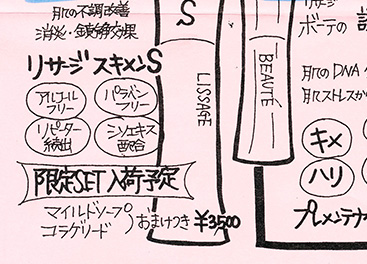 肌の不調改善
消炎・鎮静効果
リサージ スキメンS
アルコール
フリー
パラベン
フリー
リピーター
続出
シソエキス
配合
限定SET入荷予定
マイルドソープ
コラゲリード
おまけつき ¥3,500
S
LISSAGE
BEAUTÉ
リサージ
ボーテの
肌のDNA
肌ストレスか
キメ
ハリ
プレメンテナ